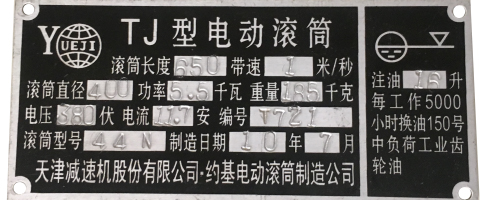 YUEJI
TJ型电动滚筒
滚筒长度 650 带速 1 米/秒
滚筒直径 400 功率 5.5 千瓦 重量 185 千克
电压 380 伏 电流 11.7 安 编号 T721
滚筒型号 44N 制造日期 10 年 7 月
天津减速机股份有限公司·约基电动滚筒制造公司
注油 16 升
每工作5000
小时换油150号
中负荷工业齿
轮油